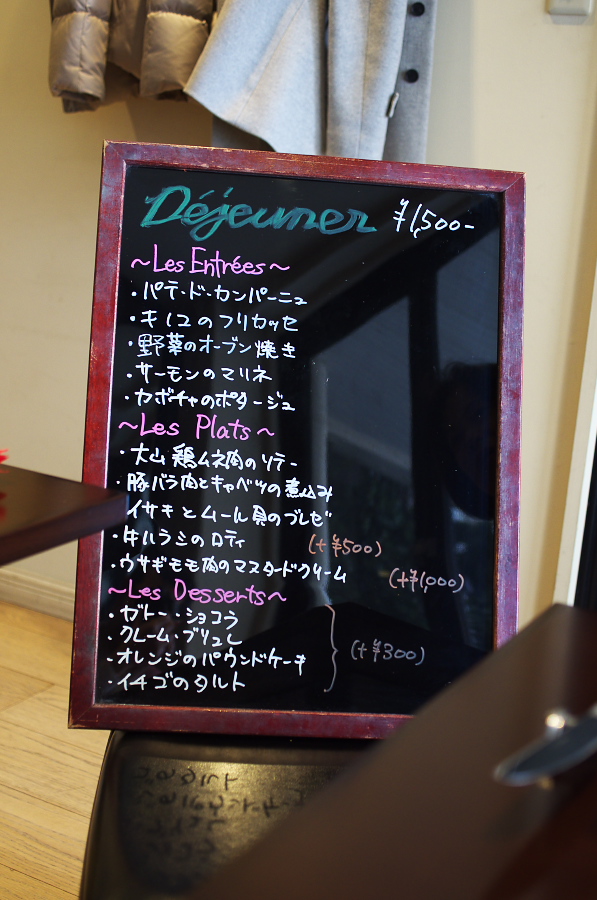 Déjeuner ¥1,500-
~Les Entrées~
・パテ・ド・カンパーニュ
・キノコのフリカッセ
・野菜のオーブン焼き
・サーモンのマリネ
・カボチャのポタージュ
~Les Plats~
・大山鶏ムネ肉のソテー
・豚バラ肉とキャベツの煮込み
イサキとムール貝のブレゼ
・牛ハラミのロティ (+¥500)
・ウサギモモ肉のマスタードクリーム (+¥1,000)
~Les Desserts~
・ガトー・ショコラ
・クレーム・ブリュレ
・オレンジのパウンドケーキ (+¥300)
・イチゴのタルト